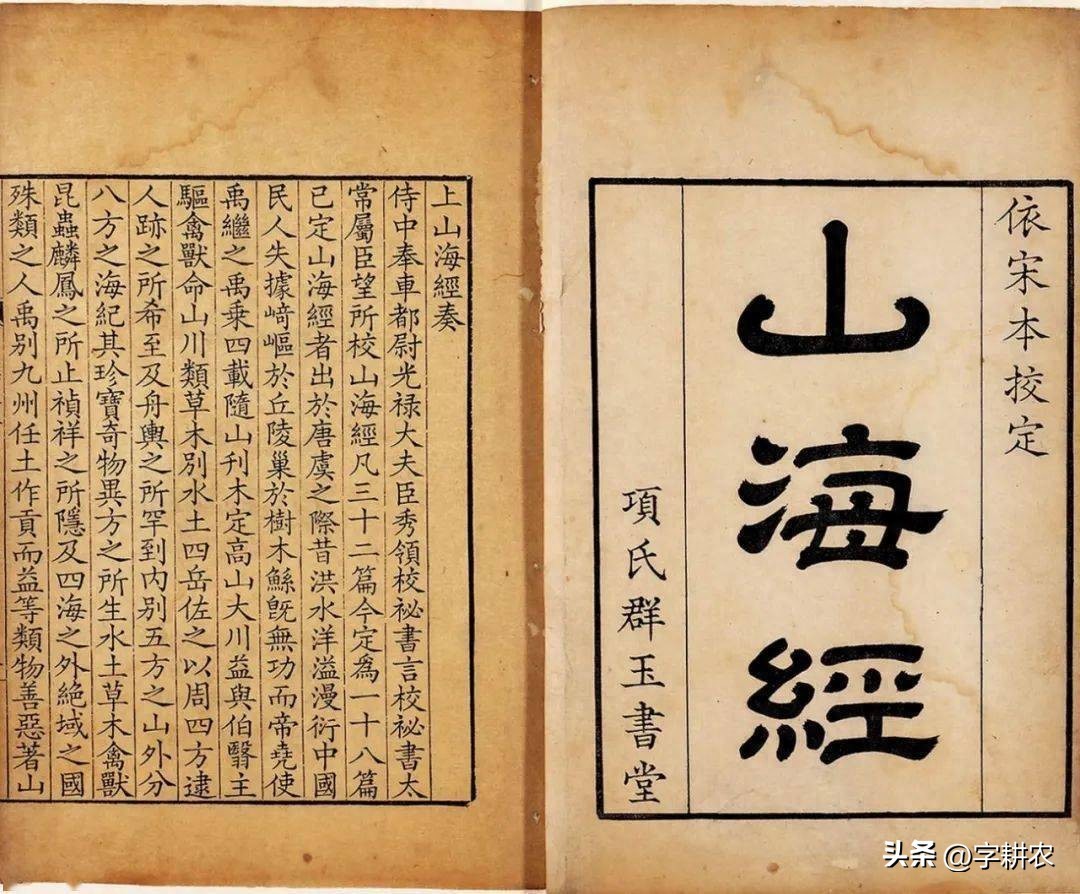 依宋本挍定
山海經
項氏群玉書堂
上山海經奏
侍中奉車都尉光禄大夫臣秀領校祕書言校祕書太
常屬臣望所校山海經凡三十二篇今定爲一十八篇
已定山海經者出於唐虞之際昔洪水洋溢漫衍中國
民人失據崎嶇於丘陵巢於樹木鯀旣無功而帝堯使
禹繼之禹乘四載隨山刋木定高山大川益與伯翳主
驅禽獸命山川類草木別水土四岳佐之以周四方逮
人跡之所希至及舟輿之所罕到内别五方之山外分
八方之海紀其珍寶奇物異方之所生水土草木禽獸
昆蟲麟鳳之所止禎祥之所隱及四海之外絶域之國
殊類之人禹别九州任土作貢而益等類物善惡著山
头条 @字耕农